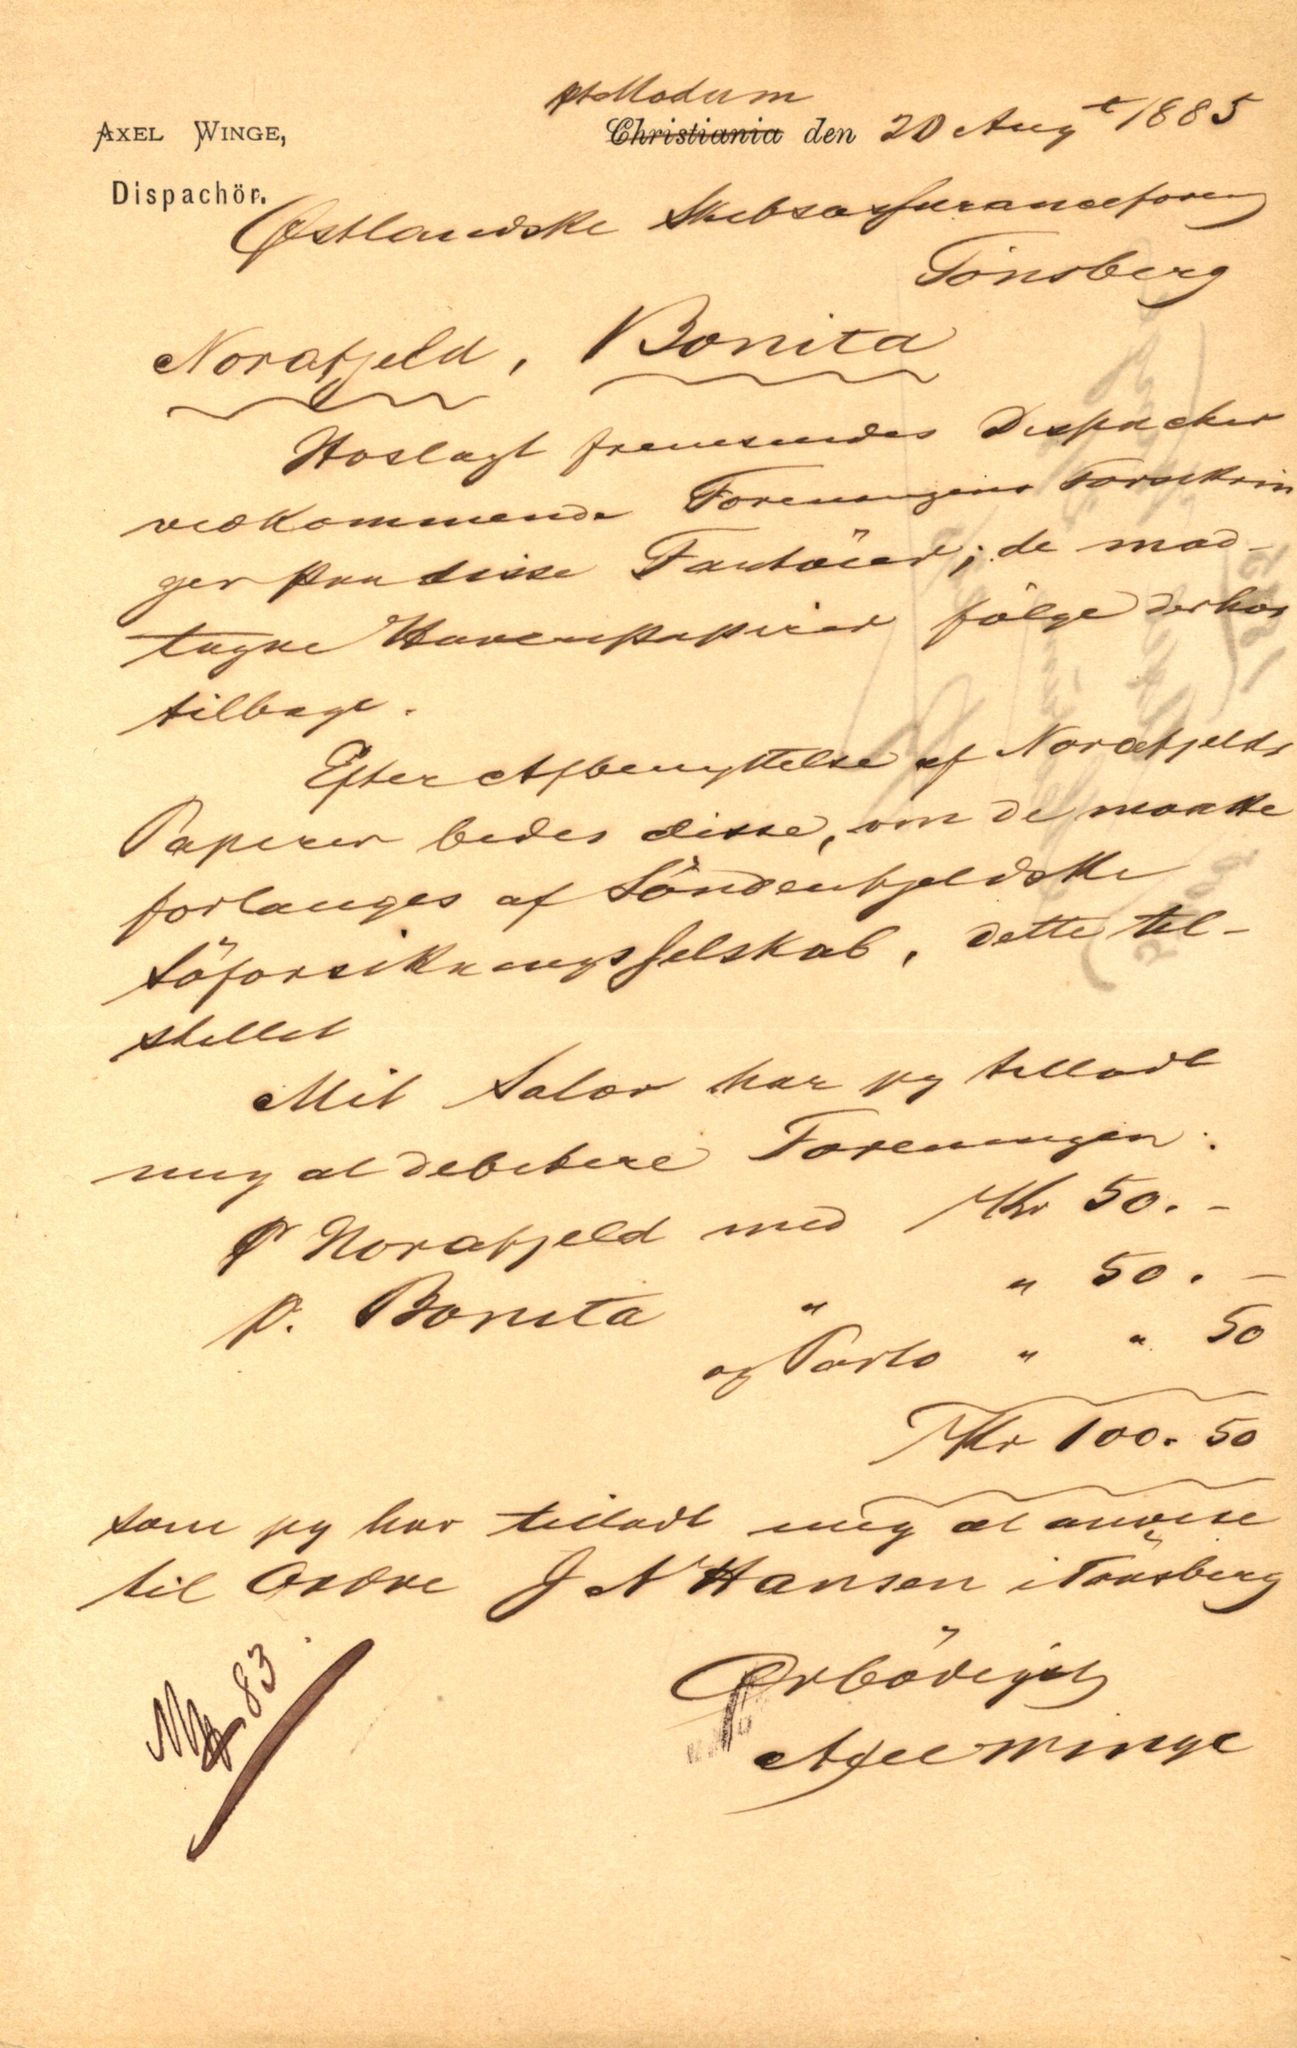 pt Modum
AXEL WINGE, Christiania den 20 Augt 1885
Dispachör.
Østlandske Skibsassuranceforeng
Tönsberg
Norafjeld, Bonita
Hoslagt fremsendes Dispacher
vedkommende Foreningens Forsikrin
ger paa disse Fartöier; de mod-
tagne Havaripapirer fölge derhos
tilbage.
Efter Afbenyttelse af Norafjelds
Papirer bedes disse, om de maatte
forlanges af Söndenfjeldske
Söforsikringsselskab, dette til-
stillet
Mit Salær har jeg tilladt
mig at debitere Foreningen:
pr Norafjeld med Kr 50.-
pr. Bonita " " 50.-
og Porto " " 50
Kr 100.50
som jeg har tilladt mig at anvise
til Ordre J N Hansen i Tönsberg
Ærbödigst
Axel Winge
83